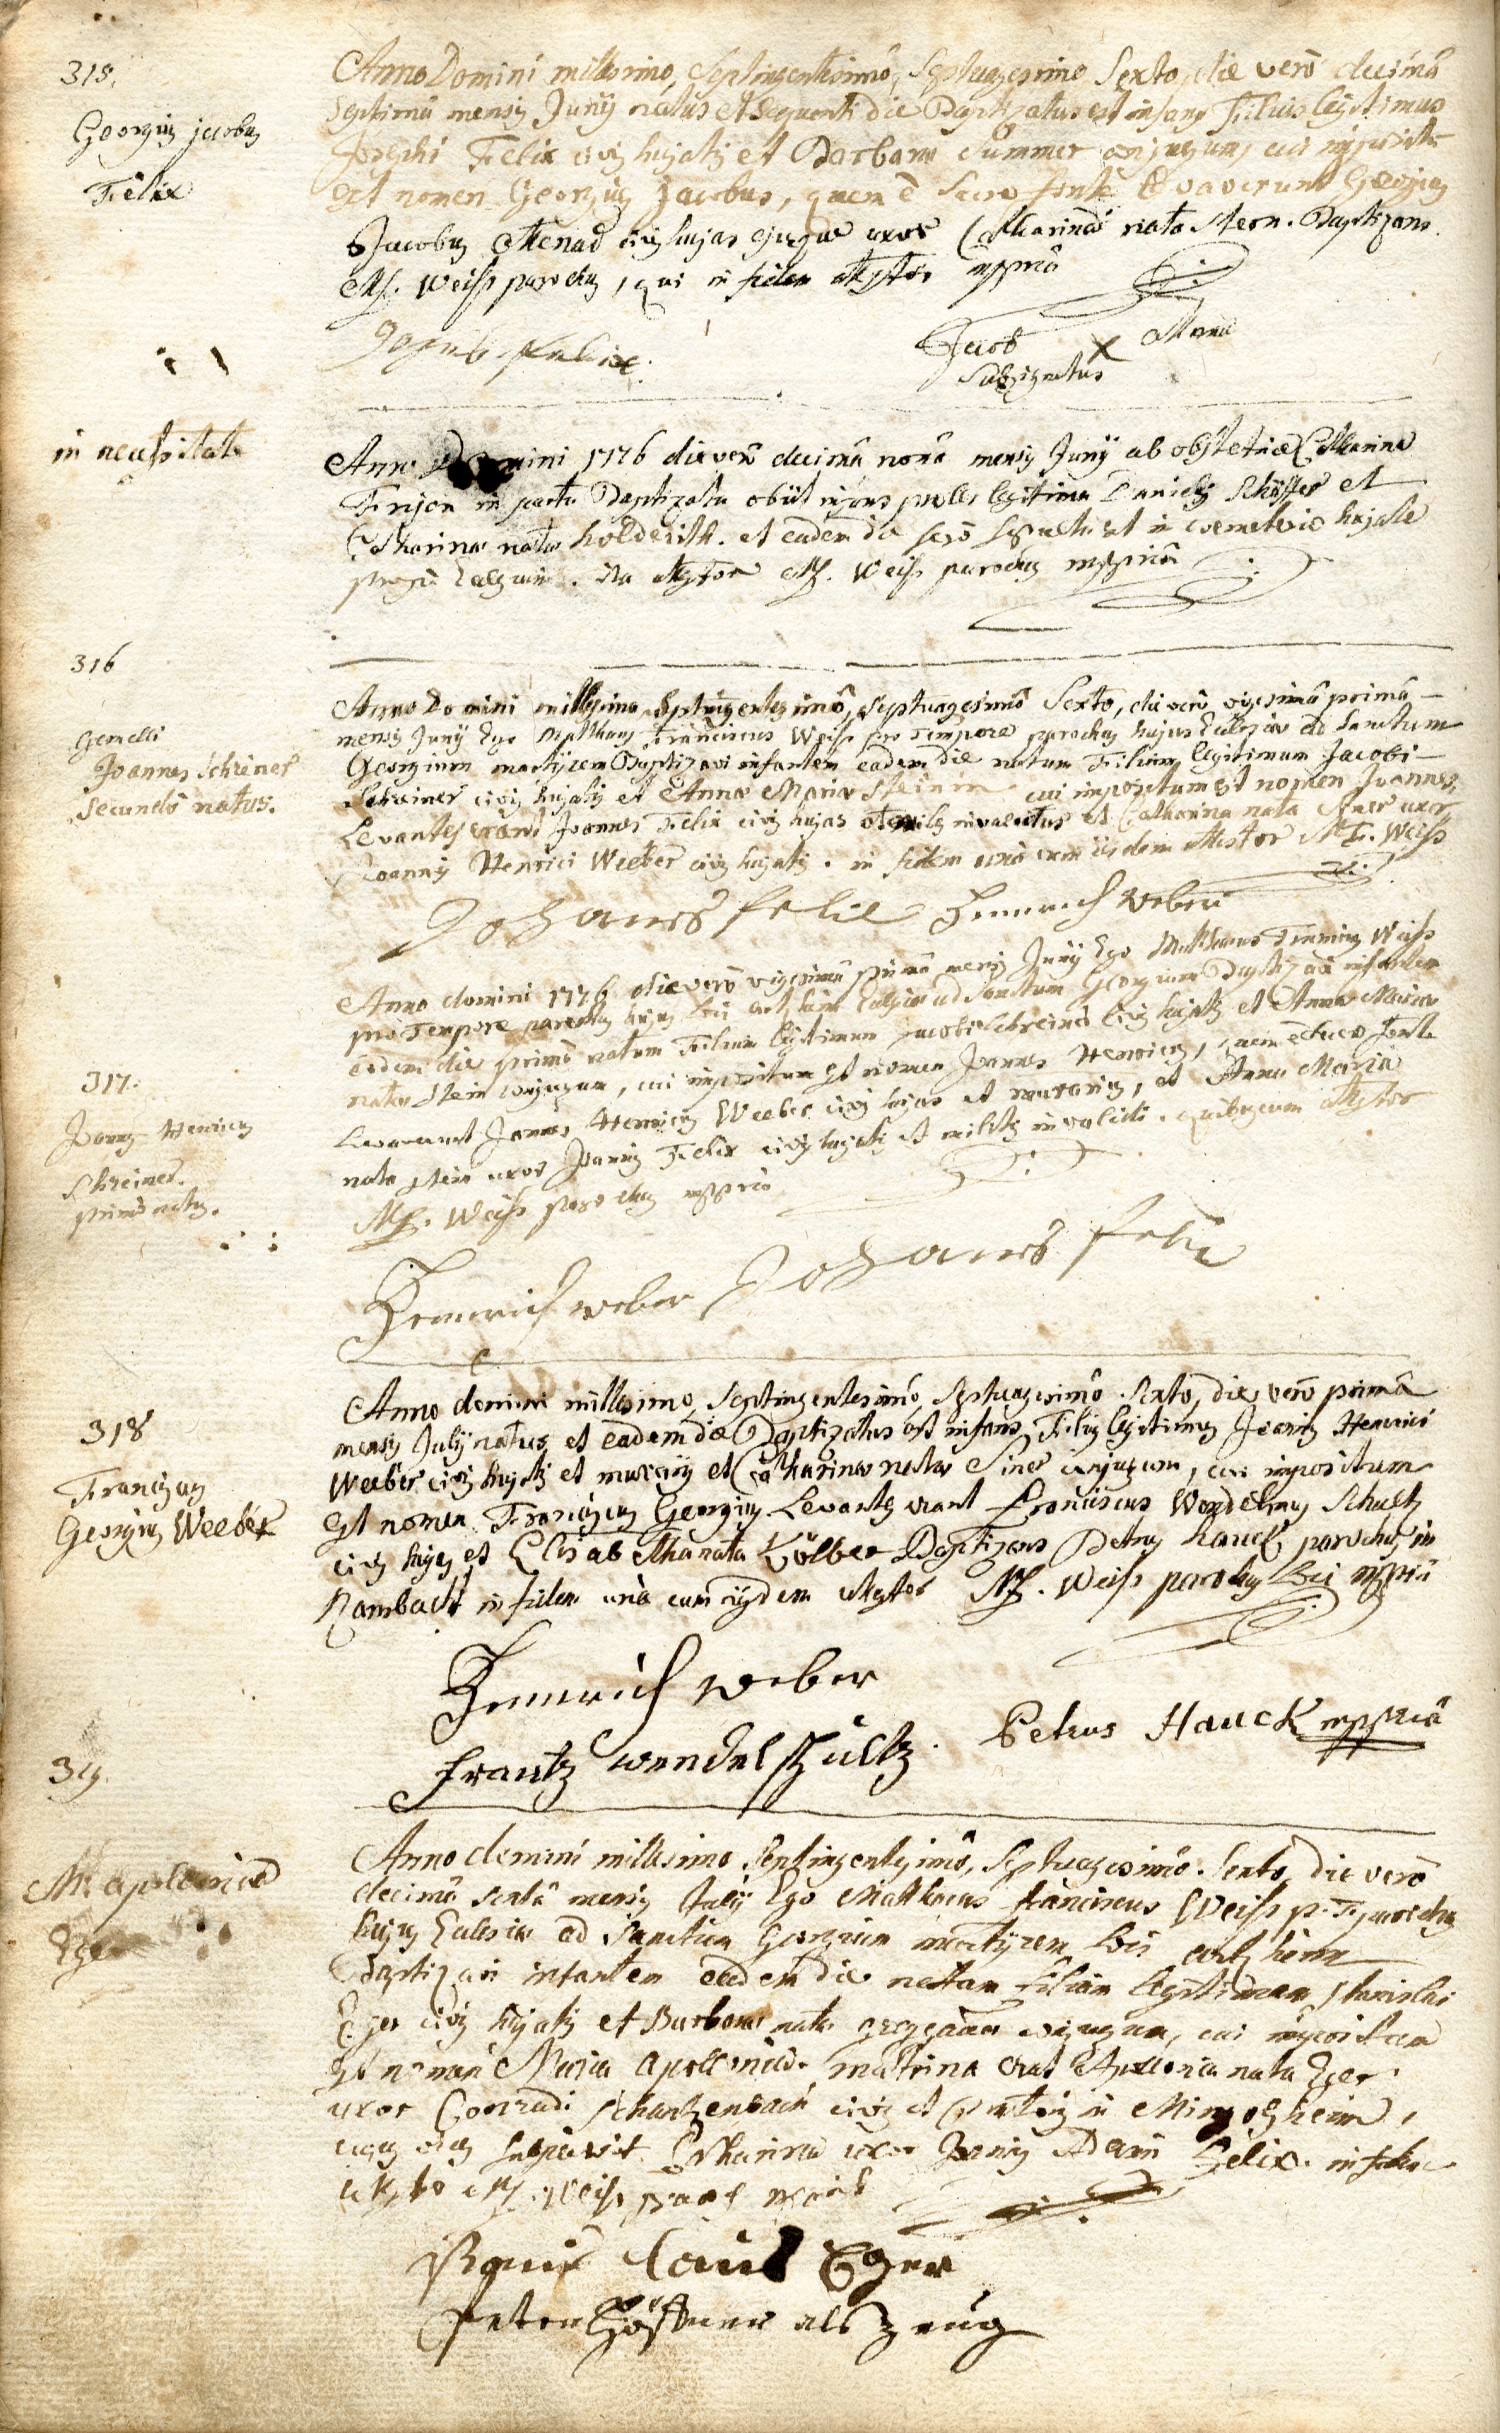 315.
Georgius jacobus
Felix
Anno Domini millesimo, septingentesimô, septuagesimo sexto, die verô decimâ
septimâ mensis Junij natus et sequenti die Baptizatus est infans filius legitimus
Josephi Felix civis hujatis et Barbara Summer conjugum, cui impositum
est nomen Georgius Jacobus, quem è sacro fonte levaverunt Georgius
Jacobus Menad civis hujas ejusque uxor Catharina nata Stern. Baptizans
Mf. Weiss parochus, qui in fidem attestor mppriâ
Joseb Felix.
Jacob X Mena
Subsignatus
in necessitate
Anno Domini 1776 die verô decimâ nonâ mensis Junij ab obstetrice Catharina
Finjon in partu Baptizata obiit infans proles legitima Danielis Schäffer et
Catharina nata holderith. et eadem die serò sepulta est in coemeterio hujate
prope Ecclesiam. ita attestor Mf. Weiss parochus mppriâ
316
Gemelli
Joannes Schreiner
Secundô natus.
Anno Domini millesimo septingentesimô, septuagesimô Sexto, die verô vigesimâ primâ
mensis Junij Ego Mathaeus Franciscus Weiss pro Tempore parochus hujus Ecclesiae ad Sanctum
Georgium martyrem Baptizavi infantem eadem die natum Filium legitimum Jacobi
Schreiner civis hujatis et Anna Maria Steinin cui impositum est nomen Joannes,
Levantes erant Joannes Felix civis hujas et miles invalidus et Catharina nata Siner uxor
Joannis Henrici Weeber civis hujatis. in fidem unà cum iisdem attestor Mf. Weiss
Johanes felix Heinrich Weber
317.
Joannes Henricus
Schreiner.
primò natus.
Anno domini 1776 die verô vigesimâ primâ mensis Junij Ego Mathaeus Franciscus Weiss
pro Tempore parochus hujus loci Ecclesiae ad Sanctum Georgium Baptizavi infantem
eadem die primô natum Filium legitimum Jacobi Schreiner Civis hujatis et Anna Maria
nata Stein conjugum, cui impositum est nomen Joannes Henricus, quem è sacro fonte
Levaverunt Joannes Henricus Weeber civis hujas et murarius, et Anna Maria
nata stein uxor Joannis Felix civis hujatis et militis invalidi. quibuscum attestor
Mf. Weiss parochus mppriâ
Heinrich weber Johanes felix
318
Franciscus
Georgius Weeber
Anno domini millesimo, septingentesimô, septuagesimô Sexto, die verô primâ
mensis Julij natus et eadem die Baptizatus est infans Filius legitimus Joannis Henrici
Weeber civis hujatis et murarij et Catharina nata Siner conjugum, cui impositum
est nomen Franciscus Georgius Levantes erant Franciscus Wendelinus Schultz
civis hujas et Elisabetha nata Kölber Baptizans Petrus hauck parochus in
Rambach in fidem unà cum iisdem attestor Mf. Weiss parochus loci mppriâ
Heinrich weber
Petrus Hauck mppriâ
frantz wendel schultz.
319.
M. apolonia
Eger
Anno domini millesimo septingentesimô, septuagesimô Sexto, die verô
decimâ sextâ mensis Julij Ego Mathaeus franciscus Weiss p. T. parochus
hujus Ecclesiae ad Sanctum Georgium martyrem loci
Baptizavi infantem eadem die natam filiam legitimam Stanislai
Eger civis hujatis et Barbara nata conjugum, cui impositum
est nomen Maria apollonia. matrina erat Apollonia nata Eger
uxor Conradi Schantzenbach civis et in Mingolsheim,
cujus vices supplevit Catharina uxor Joannis Adami Felix. in fidem
attestor Mf. Weiss paroch mppriâ
Eger
peter als zeug